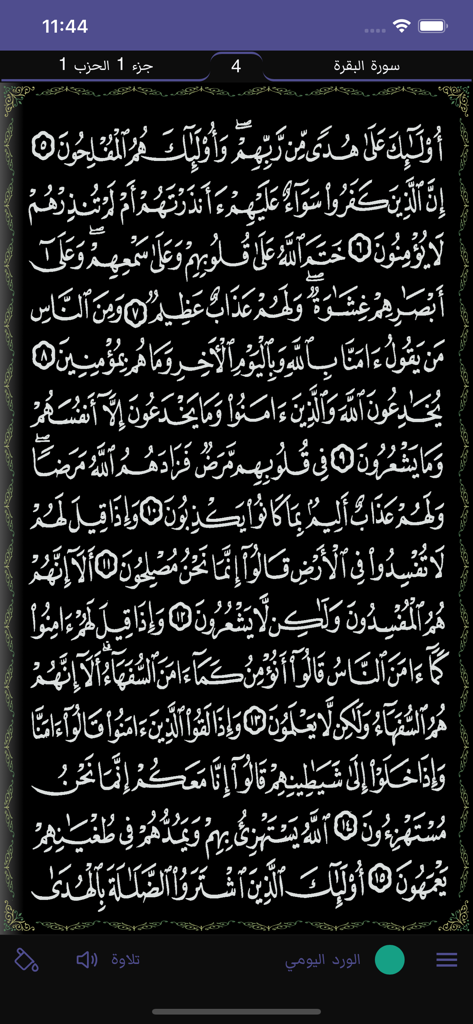 11:44
سورة البقرة
4
جزء 1 الحزب 1
أُوْلَٰٓئِكَ عَلَىٰ هُدًى مِّن رَّبِّهِمْۖ وَأُوْلَٰٓئِكَ هُمُ ٱلْمُفْلِحُونَ ٥
إِنَّ ٱلَّذِينَ كَفَرُواْ سَوَآءٌ عَلَيْهِمْ ءَأَنذَرْتَهُمْ أَمْ لَمْ تُنذِرْهُمْ
لَا يُؤْمِنُونَ ٦ خَتَمَ ٱللَّهُ عَلَىٰ قُلُوبِهِمْ وَعَلَىٰ سَمْعِهِمْۖ وَعَلَىٰٓ
أَبْصَٰرِهِمْ غِشَٰوَةٌۖ وَلَهُمْ عَذَابٌ عَظِيمٌ ٧ وَمِنَ ٱلنَّاسِ
مَن يَقُولُ ءَامَنَّا بِٱللَّهِ وَبِٱلْيَوْمِ ٱلْأٓخِرِ وَمَا هُم بِمُؤْمِنِينَ ٨
يُخَٰدِعُونَ ٱللَّهَ وَٱلَّذِينَ ءَامَنُواْ وَمَا يَخْدَعُونَ إِلَّآ أَنفُسَهُمْ
وَمَا يَشْعُرُونَ ٩ فِى قُلُوبِهِم مَّرَضٌ فَزَادَهُمُ ٱللَّهُ مَرَضًاۖ
وَلَهُمْ عَذَابٌ أَلِيمٌۢ بِمَا كَانُواْ يَكْذِبُونَ ١٠ وَإِذَا قِيلَ لَهُمْ
لَا تُفْسِدُواْ فِى ٱلْأَرْضِ قَالُوٓاْ إِنَّمَا نَحْنُ مُصْلِحُونَ ١١ أَلَآ إِنَّهُمْ
هُمُ ٱلْمُفْسِدُونَ وَلَٰكِن لَّا يَشْعُرُونَ ١٢ وَإِذَا قِيلَ لَهُمْ ءَامِنُواْ
كَمَآ ءَامَنَ ٱلنَّاسُ قَالُوٓاْ أَنُؤْمِنُ كَمَآ ءَامَنَ ٱلسُّفَهَآءُۗ أَلَآ إِنَّهُمْ
هُمُ ٱلسُّفَهَآءُ وَلَٰكِن لَّا يَعْلَمُونَ ١٣ وَإِذَا لَقُواْ ٱلَّذِينَ ءَامَنُواْ قَالُوٓاْ ءَامَنَّا
وَإِذَا خَلَوْاْ إِلَىٰ شَيَٰطِينِهِمْ قَالُوٓاْ إِنَّا مَعَكُمْ إِنَّمَا نَحْنُ
مُسْتَهْزِءُونَ ١٤ ٱللَّهُ يَسْتَهْزِئُ بِهِمْ وَيَمُدُّهُمْ فِى طُغْيَٰنِهِمْ
يَعْمَهُونَ ١٥ أُوْلَٰٓئِكَ ٱلَّذِينَ ٱشْتَرَوُاْ ٱلضَّلَٰلَةَ بِٱلْهُدَىٰ
الورد اليومي
تلاوة